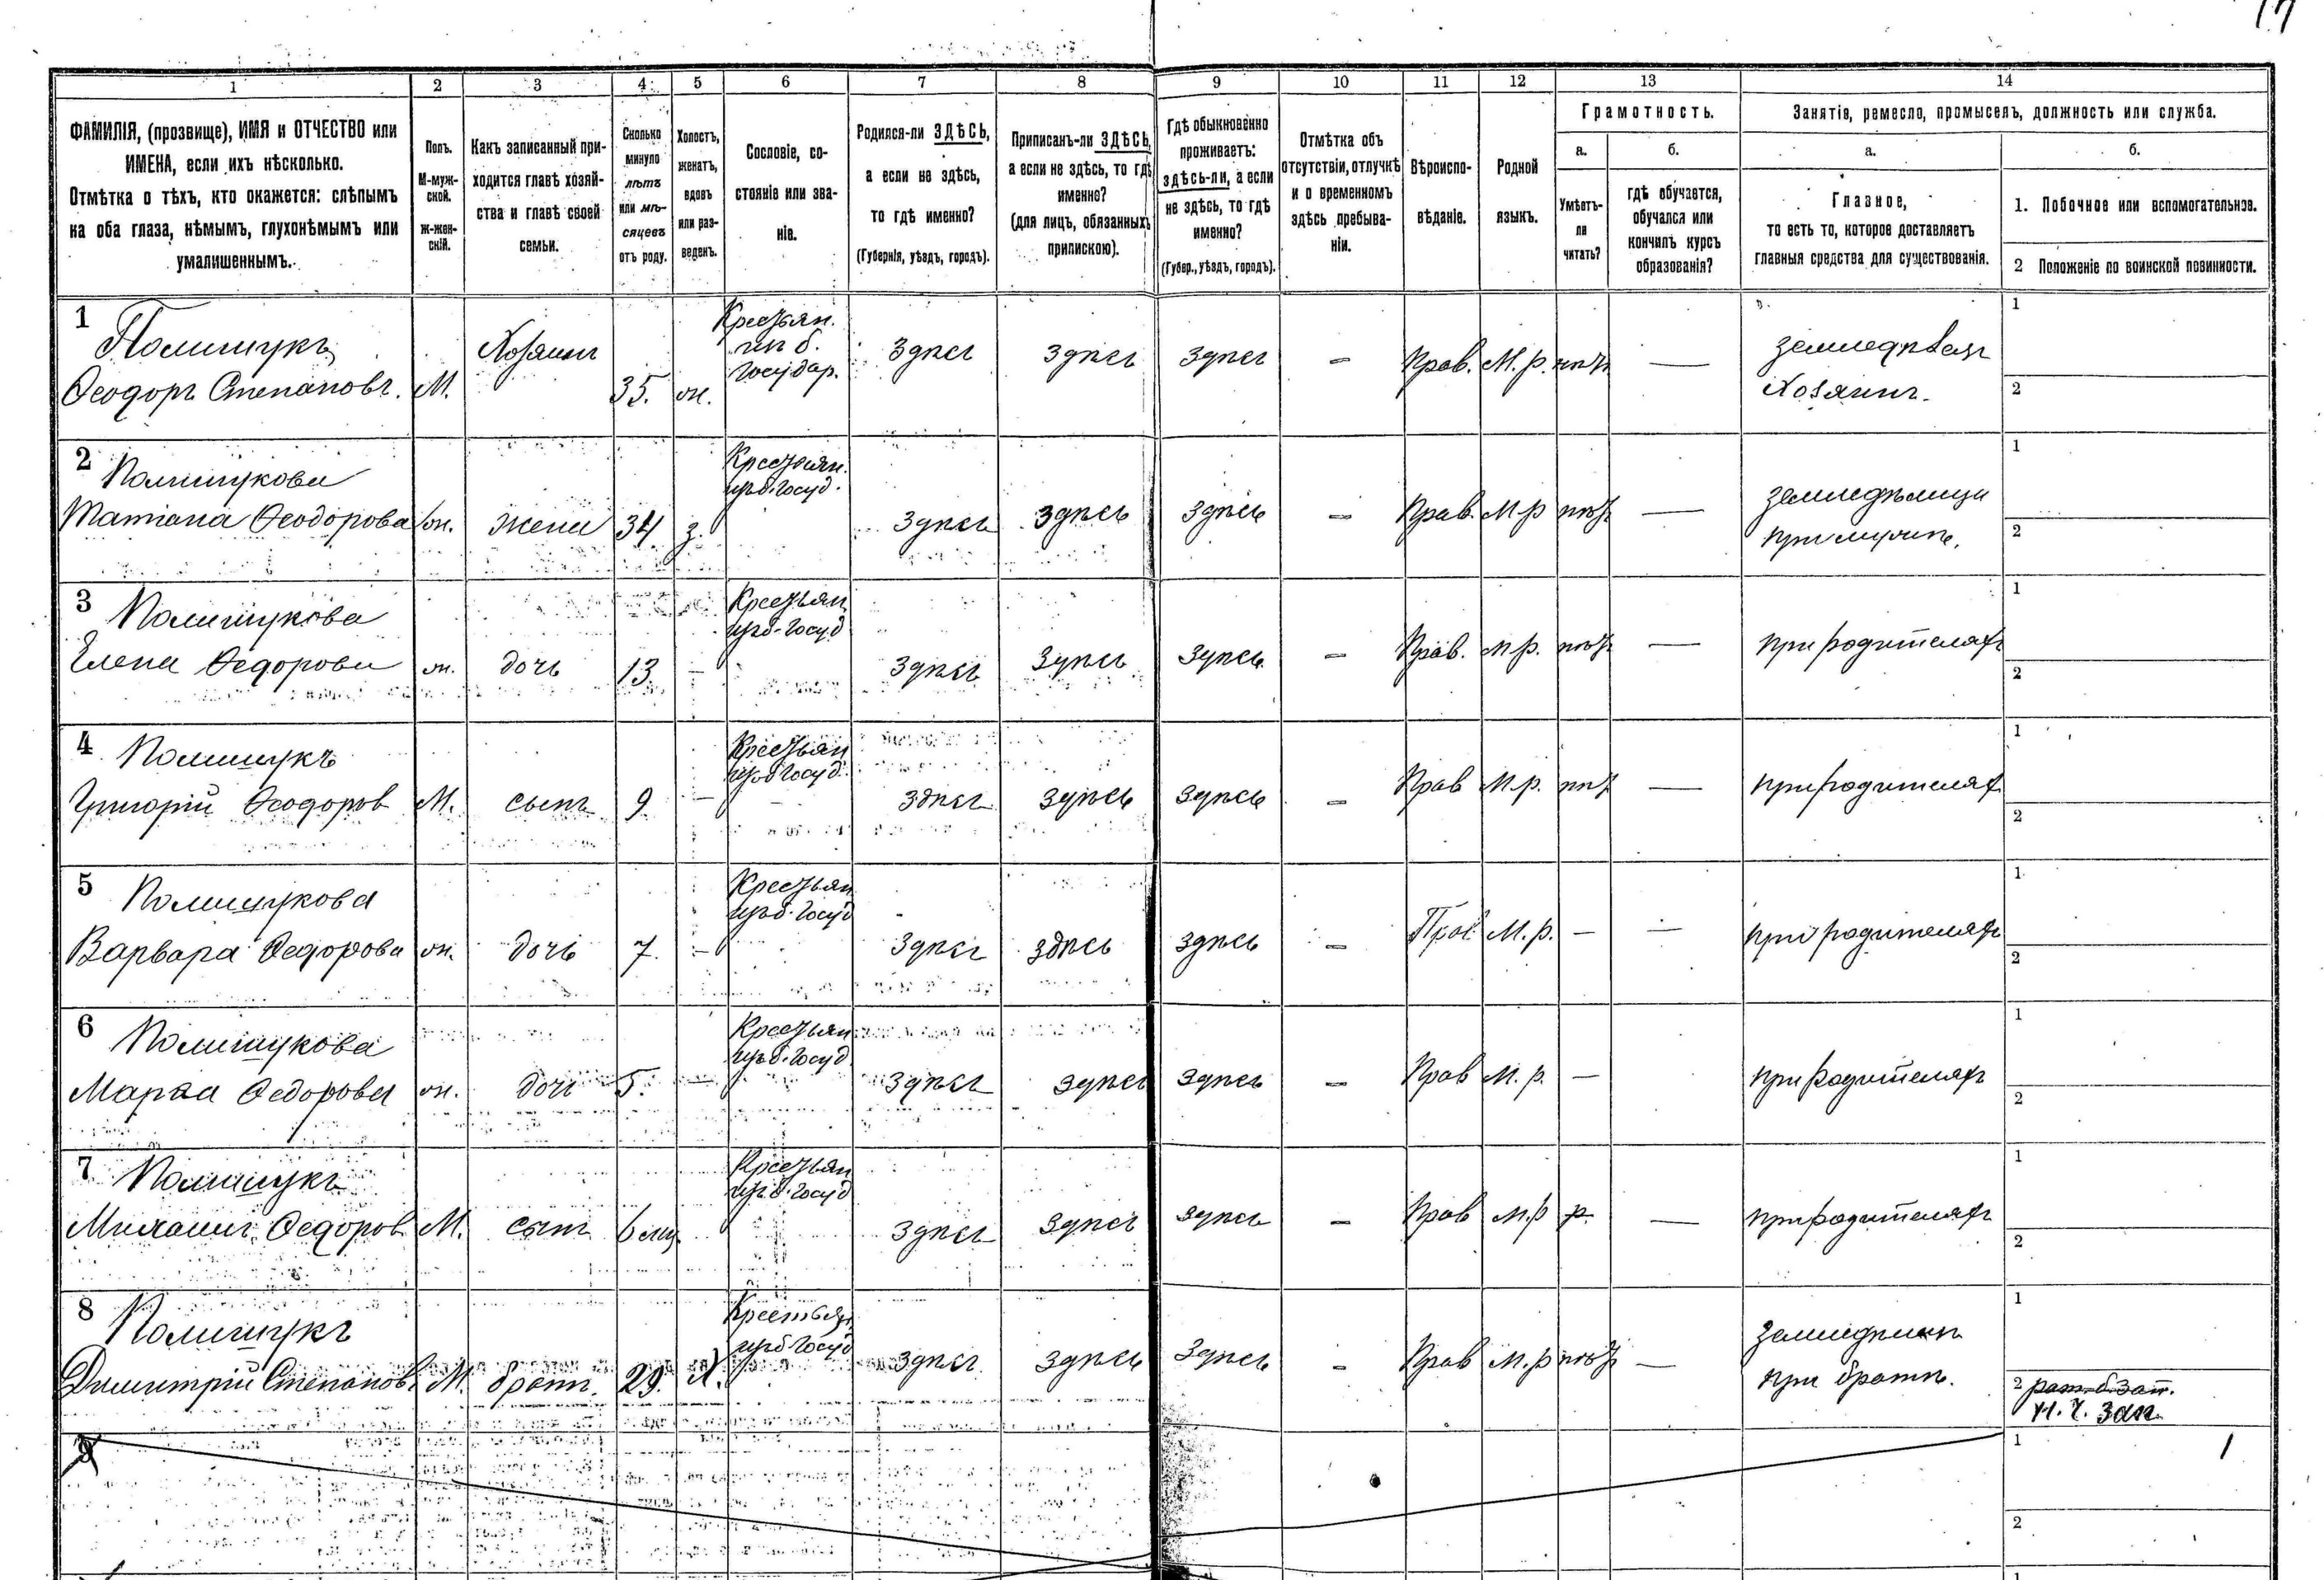 17
1 2 3 4 5 6 7 8 9 10 11 12 13 14
ФАМИЛІЯ, (прозвище), ИМЯ и ОТЧЕСТВО или
ИМЕНА, если ихъ нѣсколько.
Отмѣтка о тѣхъ, кто окажется: слѣпымъ
на оба глаза, нѣмымъ, глухонѣмымъ или
умалишеннымъ.
Полъ.
М-муж-
ской.
Ж-жен-
скій.
Какъ записанный при-
ходится главѣ хозяй-
ства и главѣ своей
семьи.
Сколько
минуло
лѣтъ
или мѣ-
сяцевъ
отъ роду.
Холостъ,
женатъ,
вдовъ
или раз-
веденъ.
Сословіе, со-
стояніе или зва-
ніе.
Родился-ли ЗДѢСЬ,
а если не здѣсь,
то гдѣ именно?
(Губернія, уѣздъ, городъ).
Приписанъ-ли ЗДѢСЬ,
а если не здѣсь, то гдѣ
именно?
(для лицъ, обязанныхъ
припискою).
Гдѣ обыкновенно
проживаетъ:
здѣсь-ли, а если
не здѣсь, то гдѣ
именно?
(Губер., уѣздъ, городъ).
Отмѣтка объ
отсутствіи, отлучкѣ
и о временномъ
здѣсь пребыва-
ніи.
Вѣроиспо-
вѣданіе.
Родной
языкъ.
Грамотность.
а.
Умѣетъ-
ли
читать?
б.
гдѣ обучается,
обучался или
кончилъ курсъ
образованія?
Занятія, ремесло, промыселъ, должность или служба.
а.
Главное,
то есть то, которое доставляетъ
главныя средства для существованія.
б.
1. Побочное или вспомогательное.
2 Положеніе по воинской повинности.
1
Полищукъ
Ѳеодоръ Степановъ.
М.
Хозяинъ
35.
ж.
Крестьян.
ин б.
Государ.
Здѣсь
Здѣсь
Здѣсь
–
Прав.
М. р.
нѣтъ
—
земледѣлецъ
Хозяинъ.
1
2
2
Полищукова
Татіана Ѳеодорова
ж.
жена
34
з.
Крестьян.
изъ б. Госуд.
Здѣсь
Здѣсь
Здѣсь
–
Прав.
М. р
нѣтъ
—
земледѣлица
при мужѣ.
1
2
3
Полищукова
Елена Ѳедорова
ж.
дочь
13
–
Крестьян
изъ б. Госуд
Здѣсь
Здѣсь
Здѣсь
–
Прав.
М. р.
нѣтъ
—
при родителяхъ
1
2
4
Полищукъ
Григорій Ѳеодоров
М.
сынъ
9
–
Крестьян
изъ б Госуд.
Здѣсь
Здѣсь
Здѣсь
–
Прав
М. р.
нѣт
—
при родителях
1
2
5
Полищукова
Варвара Ѳедорова
ж.
дочь
7
–
Крестьян
изъ б. Госуд
Здѣсь
Здѣсь
Здѣсь
–
Прав
М. р.
–
—
при родителяхъ
1
2
6
Полищукова
Марѳа Ѳедорова
ж.
дочь
5.
—
Крестьян
изъ б. Госуд
Здѣсь
Здѣсь
Здѣсь
–
Прав
М. р.
–
при родителяхъ
1
2
7
Полищукъ
Ѳедоров
М.
сынъ
6 мц
Крестьян
изъ б. Госуд
Здѣсь
Здѣсь
Здѣсь
–
Прав
М. р
р.
—
при родителяхъ
1
2
8
Полищукъ
Димитрій Степанов.
М.
братъ.
29.
Х.
Крестьян
изъ б Госуд
Здѣсь
Здѣсь
Здѣсь
–
Прав
М. р
нѣтъ
—
земледѣлецъ
при братѣ.
1
2 рат. б. зап.
зап.
9
1
1
2
1